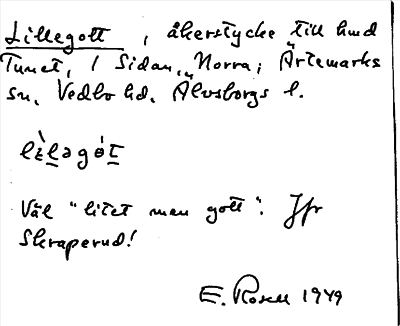 Lillegott, åkerstycke till hmd
Tunet, 1 Sidan, Norra, Ärtemarks
sn, Vedbo hd, Älvsborgs l.
lɛ̀ləgɵ́t
Väl "litet men gott". Jfr
Skraperud!
E. Rosell 1949